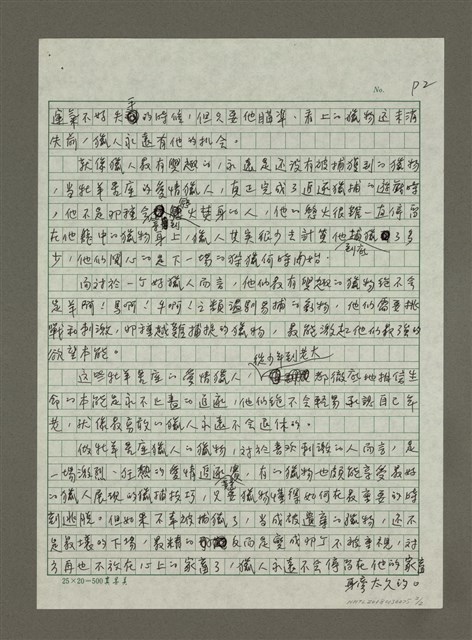 No. P2
運氣不好失手的時候，但只要他瞄準、看上的獵物還未消
失前，獵人永遠有他的機会。
就像獵人最有興趣的，永遠是还没有被捕獲到的獵物
，当牡羊星座的愛情獵人，真正完成了追逐獵捕的遊戲時
，他不是那種会　火焚身的人，他的慾火很難一直停留
在他難中的獵物身上，獵人其实很少去計算他到底捕獵了多
少，他们関心的是下一場的狩獵何時開始。
而对於一个好獵人而言，他们最有興趣的獵物絕不会
是羊啊！馬啊！牛啊！之類過於易捕的動物，他们需要挑
戰和刺激，那種越難捕捉的獵物，最能激起他们最強的
欲望本能。
這些牡羊星座的愛情獵人，從少年到老大都徹底地相信生
命的本能是永不止息的追逐，他们絕不会輕易承認自己年
老，就像最高啟的獵人永遠不会退休的。
做牡羊星座獵人的獵物，对於喜欢刺激的人而言，是
一場激烈、狂熱的愛情追逐宴，有的獵物也頗能享受最好
的獵人展現的獵捕技巧，只要獵物懂得如何在最重要的時
刻逃脫。但如果不幸被捕獵了，当成被遺棄的獵物，还不
是最壞的下場，最糟的反而是变成那个不被重視，对
方再也不放在心上的家畜了，獵人永遠不会停留在他的家畜
身旁太久的。
25×20=500